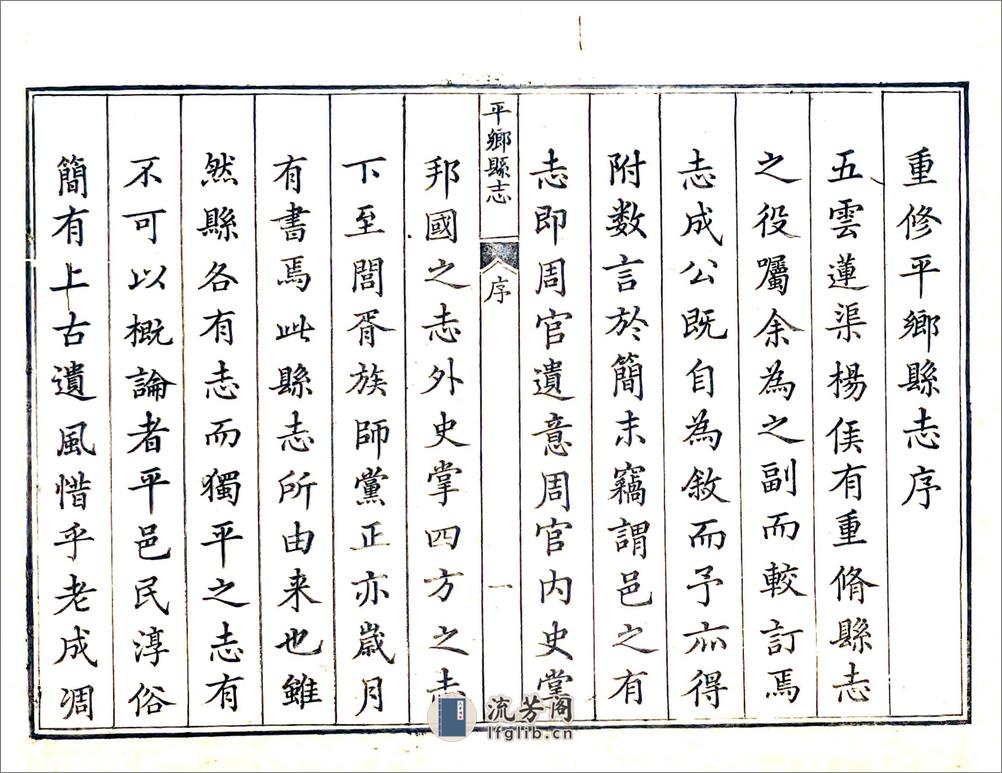 重修平鄉縣志序
五雲蓮渠楊侯有重脩縣志
之役囑余為之副而較訂焉
志成公既自為敘而予亦得
附数言於簡末竊謂邑之有
志即周官遺意周官內史掌
平鄉縣志
序
一
邦國之志外史掌四方之志
下至閭胥族師黨正亦歲月
有書焉此縣志所由来也雖
然縣各有志而獨平之志有
不可以概論者平邑民淳俗
簡有上古遺風惜乎老成凋
流芳阁
lfglib.cn